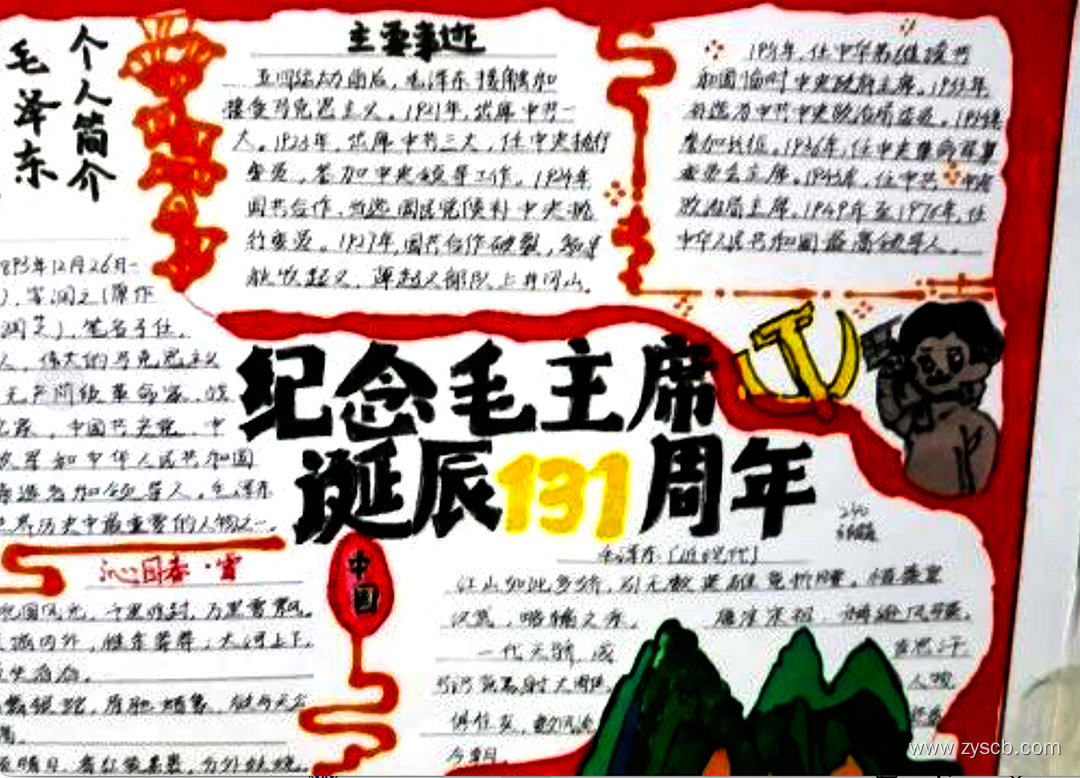 毛泽东
个人简介
893年12月26日-
），字润之（原作
润芝），笔名子任。
人，伟大的马克思主义
无产阶级革命家，战
论家，中国共产党、中
放军和中华人民共和国
缔造者和领导人。毛泽东
世界历史中最重要的人物之一。
主要事迹
五四运动前后，毛泽东接触和
接受马克思主义。1921年，出席中共一
大。1923年，出席中共三大，任中央执行
委员，参加中央领导工作。1924年
国共合作，当选国民党候补中央执
行委员。1927年，国共合作破裂，领导
秋收起义，率起义部队上井冈山。
1931年，任中华苏维埃共
和国临时中央政府主席。1933年
补选为中共中央政治局委员。1934年
参加长征。1936年，任中央革命军事
委员会主席。1943年，任中共中央
政治局主席。1949年至1976年，任
中华人民共和国最高领导人。
纪念毛主席
诞辰131周年
沁园春·雪
北国风光，千里冰封，万里雪飘。
长城内外，惟余莽莽；大河上下，
顿失滔滔。
舞银蛇，原驰蜡象，欲与天公
高。
晴日，看红装素裹，分外妖娆。
中国
毛泽东〔近现代〕
江山如此多娇，引无数英雄竞折腰。惜秦皇
汉武，略输文采。唐宗宋祖，稍逊风骚。
一代天骄，成吉思汗，
只识弯弓射大雕。
俱往矣，数风流人物，还看
今朝。
www.zyscb.com